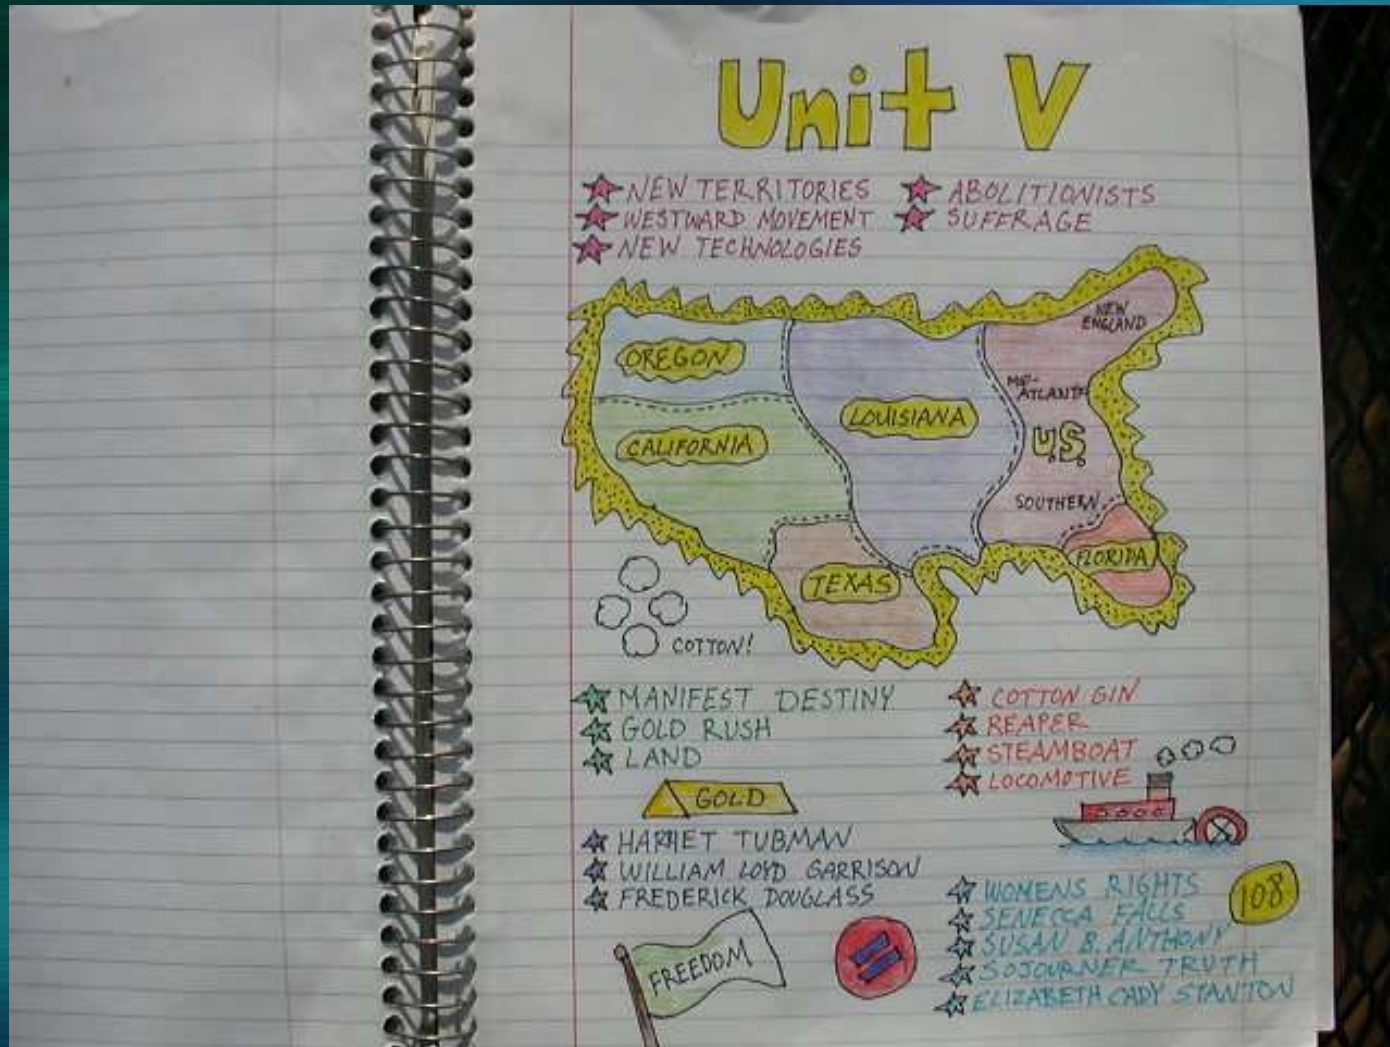 Unit V
NEW TERRITORIES
WESTWARD MOVEMENT
NEW TECHNOLOGIES
ABOLITIONISTS
SUFFRAGE
NEW
ENGLAND
OREGON
MID-
ATLANTIC
LOUISIANA
CALIFORNIA
U.S.
SOUTHERN
FLORIDA
TEXAS
COTTON!
MANIFEST DESTINY
GOLD RUSH
LAND
COTTON GIN
REAPER
STEAMBOAT
LOCOMOTIVE
GOLD
HARRIET TUBMAN
WILLIAM LOYD GARRISON
FREDERICK DOUGLASS
WOMENS RIGHTS
SENECCA FALLS
SUSAN B. ANTHONY
SOJOURNER TRUTH
ELIZABETH CADY STANTON
108
FREEDOM
=